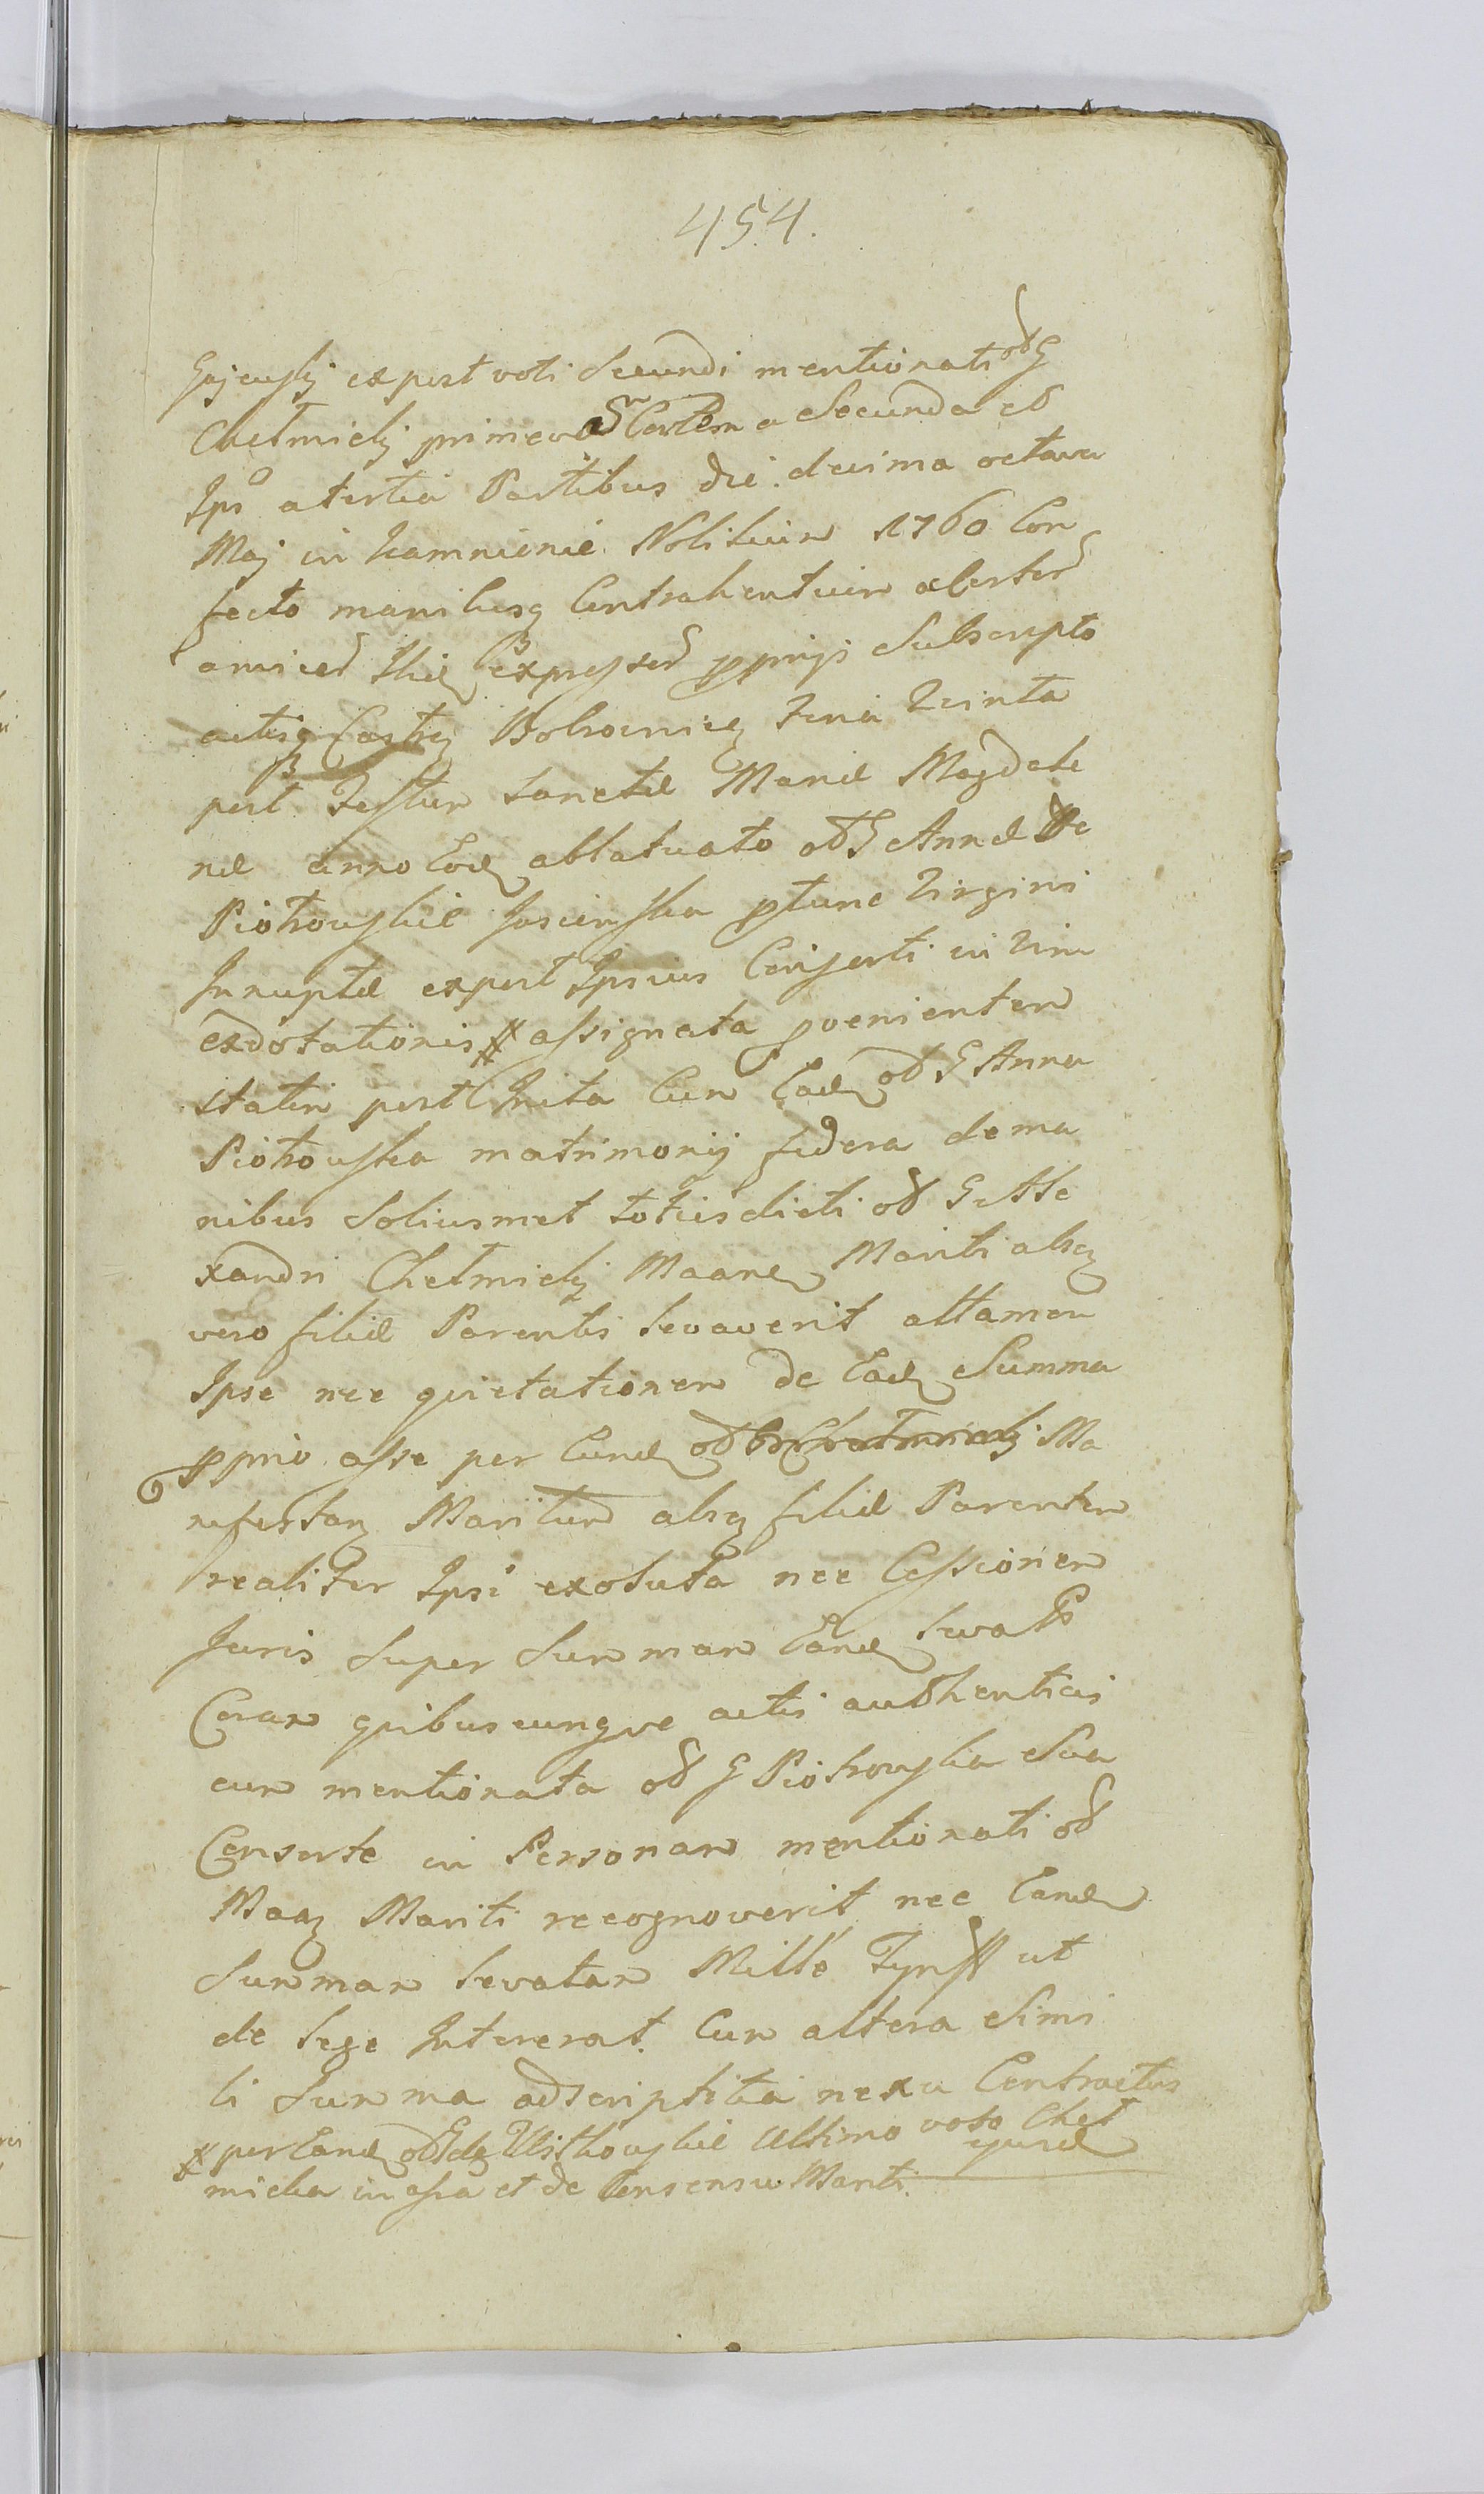 454.
Gajewskij expost voti Secundi mentionati odG
Chełmickj primer Secunda et
Ips a tertia Partibus die decima octava
Maj in Kamnienie Nobilium 1760 Con
fecto manibusq Contrahentium
amicor Ibid expressor pprijs Subscripto
actisq Castrej feria Quinta
post Festum Sanctæ Mariæ Magdale
næ Anno Eod oblatuato odG Annæ de
Piotrowskie ptunc Virgini
Innuptæ expost Ipsius Consorti in Vim
exdotationis # assignata pvenientem
statim post Inita Cum Ead odG Anna
Piotrowska matrimonij fædera de ma
nibus Soliusmet totiesdicti od G Ale
xandri Chełmickj Mariti alsq
vero filiæ Parentis levaverit attamen
Ipse nec quietationem de Ead Summa
pprio asse per Eund od G Chełmickj Ma
nifestan Maritum alsq filiæ Parentem
realiter Ipsi exoluta nec Cessionem
Juris Super Summam Eand
Coram quibuscunque actis authenticis
cum mentionata od G Piotrowska Sua
Consorte in Personam mentionati od
Mariti recognoverit nec Eand
Summam levatam Mille Tynff ut
de lege Intererat. Cum altera Simi
li Summa adscriptitia nexu Contractus
# per Eand odG de Witkowskie Ultimo voto Cheł
micka in assa et de Consensu Mariti.